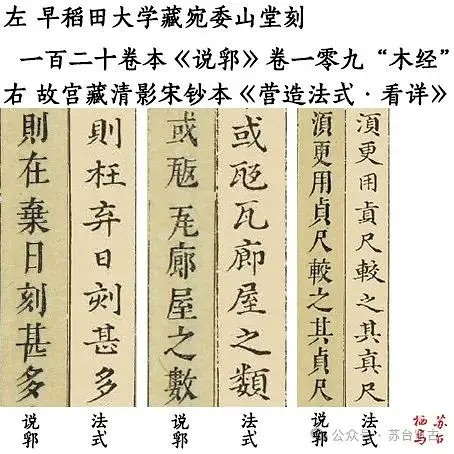 左 早稻田大学藏宛委山堂刻
一百二十卷本《说郛》卷一零九“木经”
右 故宫藏清影宋钞本《营造法式·看详》
則在棄日刻甚多
則枉弃日刻甚多
或瓦廊屋之數
或瓪瓦廊屋之類
湏更用貞尺較之其貞尺
湏更用真尺較之其真尺
说郛
法式
说郛
法式
说郛
法式
苏台
栖乌
公众号 · 苏台古